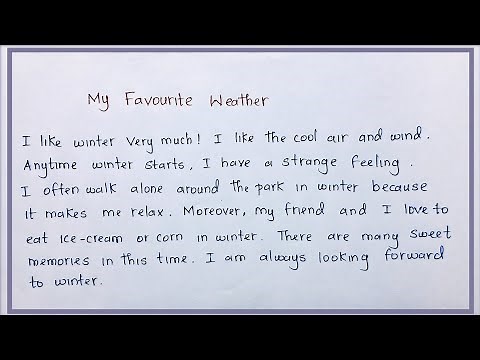 My Favourite Weather
I like winter very much! I like the cool air and wind.
Anytime winter starts, I have a strange feeling.
I often walk alone around the park in winter because
it makes me relax. Moreover, my friend and I love to
eat ice-cream or corn in winter. There are many sweet
memories in this time. I am always looking forward
to winter.